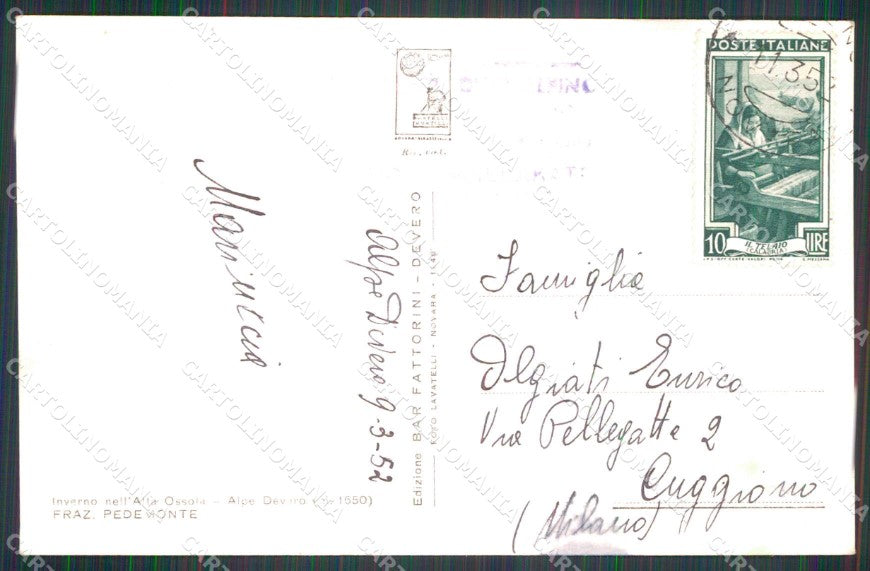 Mariuccia
Alpe Devero 9-3-52
Inverno nell'Alta Ossola - Alpe Devero (m. 1650)
FRAZ. PEDEMONTE
Edizione BAR FATTORINI - DEVERO
FOTO LAVATELLI - NOVARA - 1949
POSTE ITALIANE
10 LIRE
IL TELAIO
(CALABRIA)
Famiglia
Olgiati Enrico
Via Pellegatta 2
Cuggiono
(Milano)
CARTOLINOMANIA